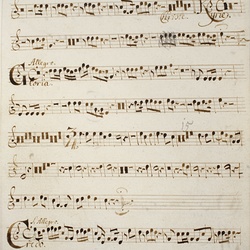 Christe. Kyrie.
Allegro.
Gloria.
Allegro.
Credo.